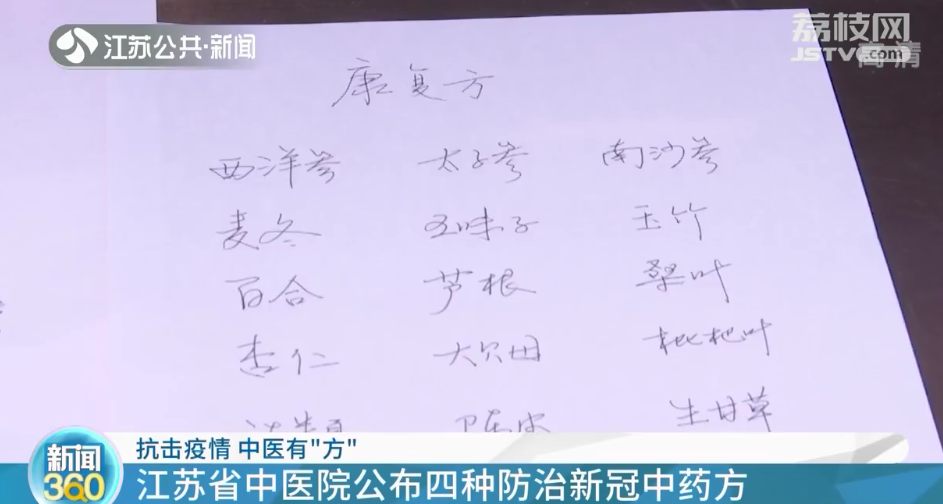 江苏公共·新闻
荔枝网
JSTV.com
高清
康复方
西洋参 太子参 南沙参
麦冬 五味子 玉竹
百合 芦根 桑叶
杏仁 大贝母 枇杷叶
陈皮 生甘草
抗击疫情 中医有"方"
新闻
360
江苏省中医院公布四种防治新冠中药方